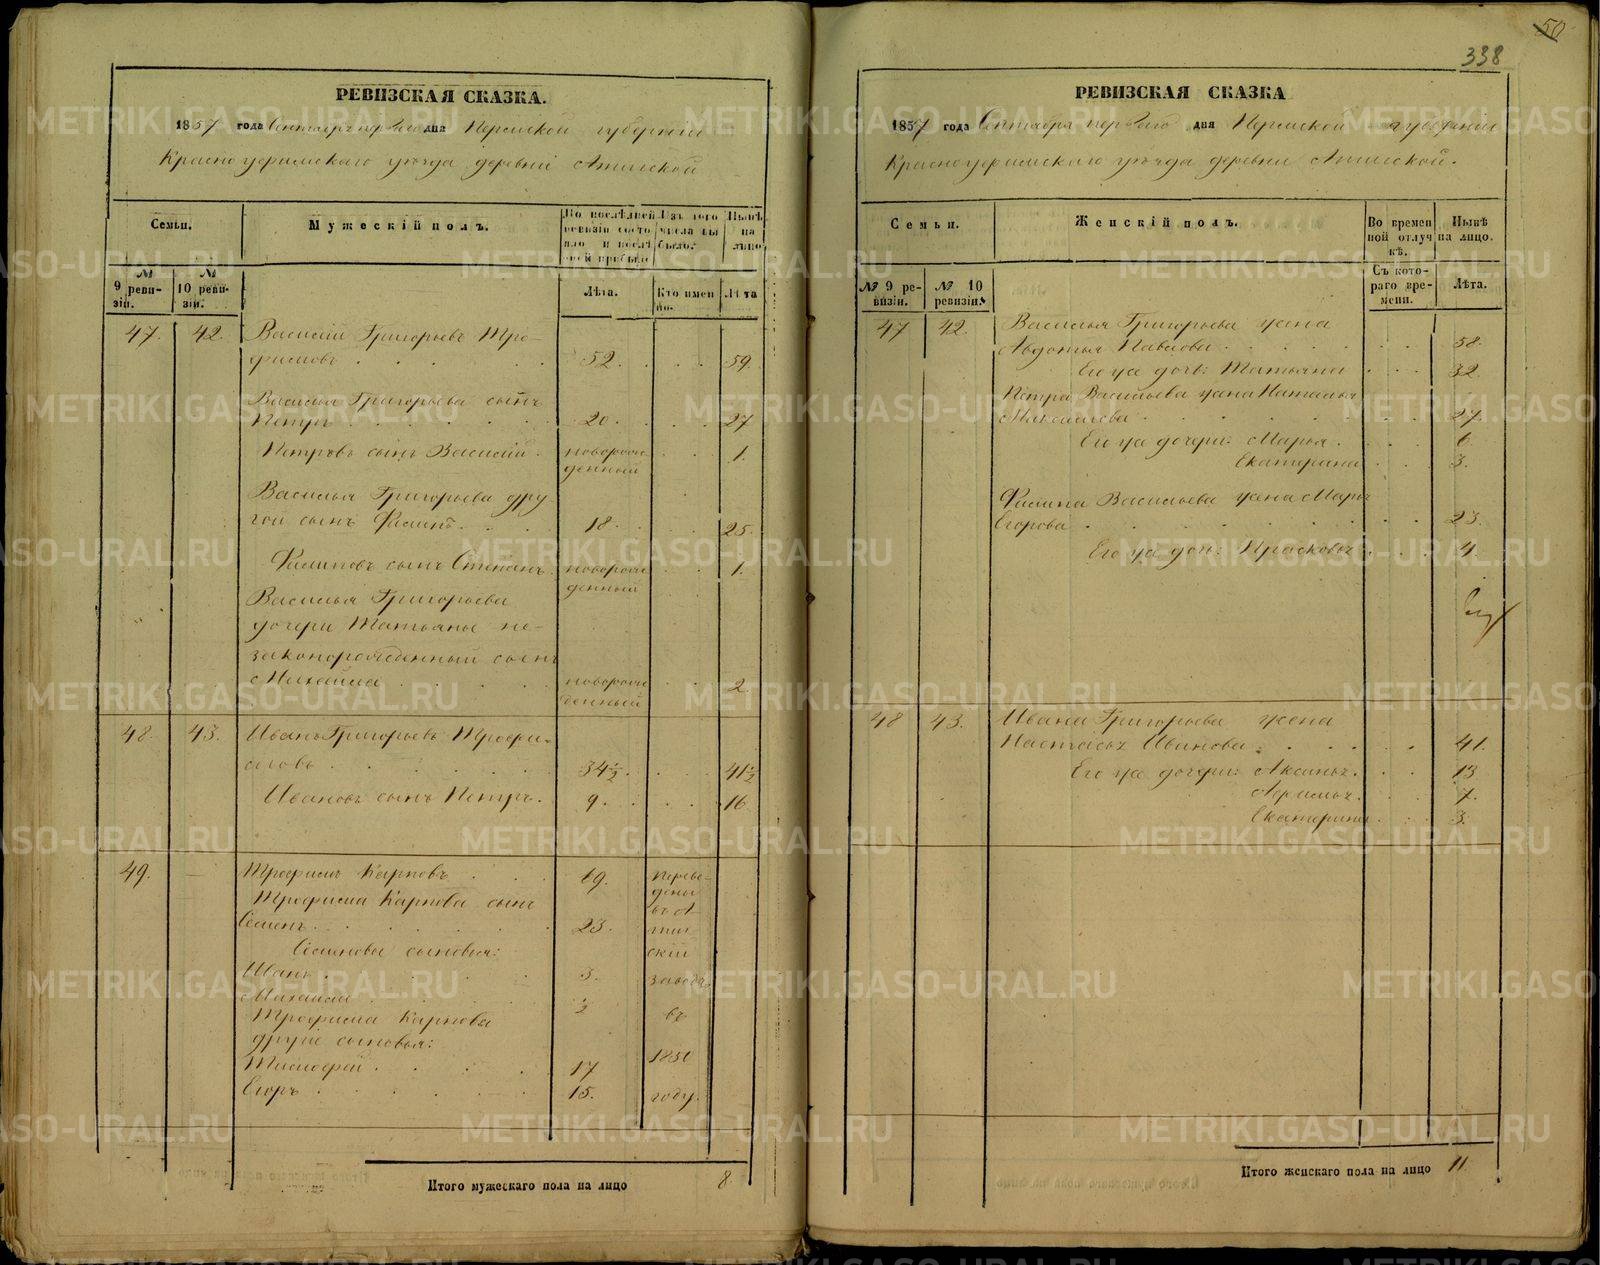 50
338
РЕВИЗСКАЯ СКАЗКА.
1857 года Сентября перваго дня Пермской губернии
Красноуфимскаго уѣзда деревни Атигской
Семьи.
Мужескій полъ.
По послѣдней ревизіи состояло и послѣ оной прибыло
Изъ того числа выбыло.
Нынѣ на лицо
№ 9 ревизіи.
№ 10 ревизіи.
Лѣта.
Кто именно.
Лѣта
47. 42. Василій Григорьевъ Тро-
фимовъ 52. 59.
Василья Григорьева сынъ
Петръ 20. 27
Петровъ сынъ Василій новорож
денный 1.
Василья Григорьева дру
гой сынъ Филипъ 18. 25.
Филиповъ сынъ Степанъ новорож
денный 1.
Василья Григорьева
дочери Татьяны не-
законорожденный сынъ
Михайла новорож
денный 2.
48. 43. Иванъ Григорьевъ Трофи-
мовъ 34½. 41½
Ивановъ сынъ Петръ. 9. 16
49. — Трофимъ Карповъ 69.
Трофима Карпова сынъ
Семенъ 23.
Семеновы сыновья:
Иванъ 3.
Михайла ½
Трофима Карпова
другіе сыновья:
Тимофей 17
Егоръ 15.
переве-
дены
въ А
тиг
скій
заводъ
въ
1850
году.
Итого мужескаго пола на лицо 8.
РЕВИЗСКАЯ СКАЗКА
1857 года Сентября перваго дня Пермской губерніи
Красноуфимскаго уѣзда деревни Атигской.
Семьи.
Женскій полъ.
Во временной отлучкѣ.
Нынѣ на лицо.
№ 9 ревизіи.
№ 10 ревизіи.
Съ котораго времени.
Лѣта.
47 42. Василья Григорьева жена
Авдотья Павлова 58.
Его жа дочь: Татьяна 32
Петра Васильева жена Наталья
27.
Его жа дочери: Марья. 6
Екатерина 3.
Филипа Васильева жена Марья
Егорова 23.
Его жа дочь: Прасковья 4
48 43. Ивана Григорьева жена
Настасья Иванова 41.
Его жа дочери: Аксинья. 13
7.
Екатерина 3.
Итого женскаго пола на лицо 11
METRIKI.GASO-URAL.RU